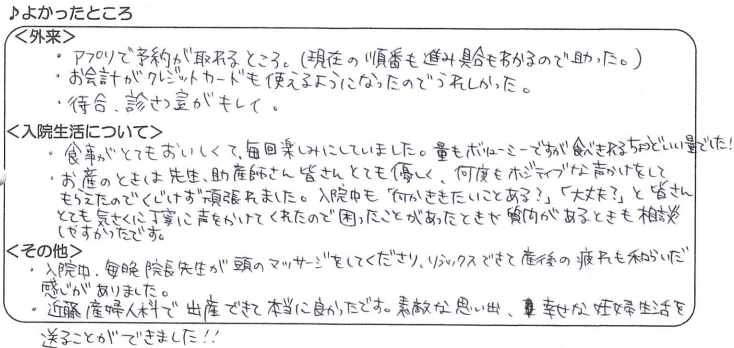 ♪よかったところ
<外来>
・アプリで予約が取れるところ。(現在の順番も進み具合もわかるので助った。)
・お会計がクレジットカードも使えるようになったのでうれしかった。
・待合、診さつ室がキレイ。
<入院生活について>
・食事がとてもおいしくて、毎回楽しみにしていました。量もボリューミーですが食べきれるちょうどいい量でした!
・お産のときは先生、助産師さん皆さんとても優しく、何度もポジティブな声かけをして
もらえたのでくじけず頑張れました。入院中も「何かききたいことある?」「大丈夫?」と皆さん
とても気さくに丁寧に声をかけてくれたので困ったことがあったときや質問があるときも相談
しやすかったです。
<その他>
・入院中、毎晩院長先生が頭のマッサージをしてくださり、リラックスできて産後の疲れも和らいだ
感じがありました。
・近藤産婦人科で出産できて本当に良かったです。素敵な思い出、幸せな妊婦生活を
送ることができました!!